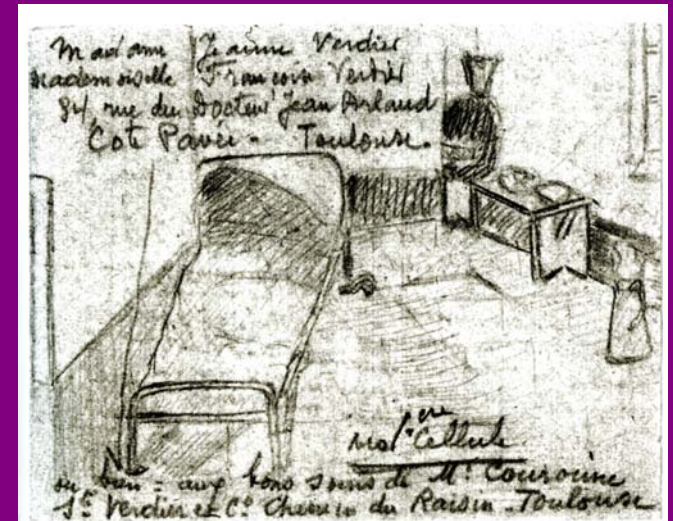 Madame Jeanne Verdier
Mademoiselle Françoise Verdier
84, rue du Docteur Jean Arlaud
Cote Pavée - Toulouse.
ma 1ère Cellule
ou bien = aux bons soins de Mr Couronne
Verdier et Cº Chemin du Raisin - Toulouse